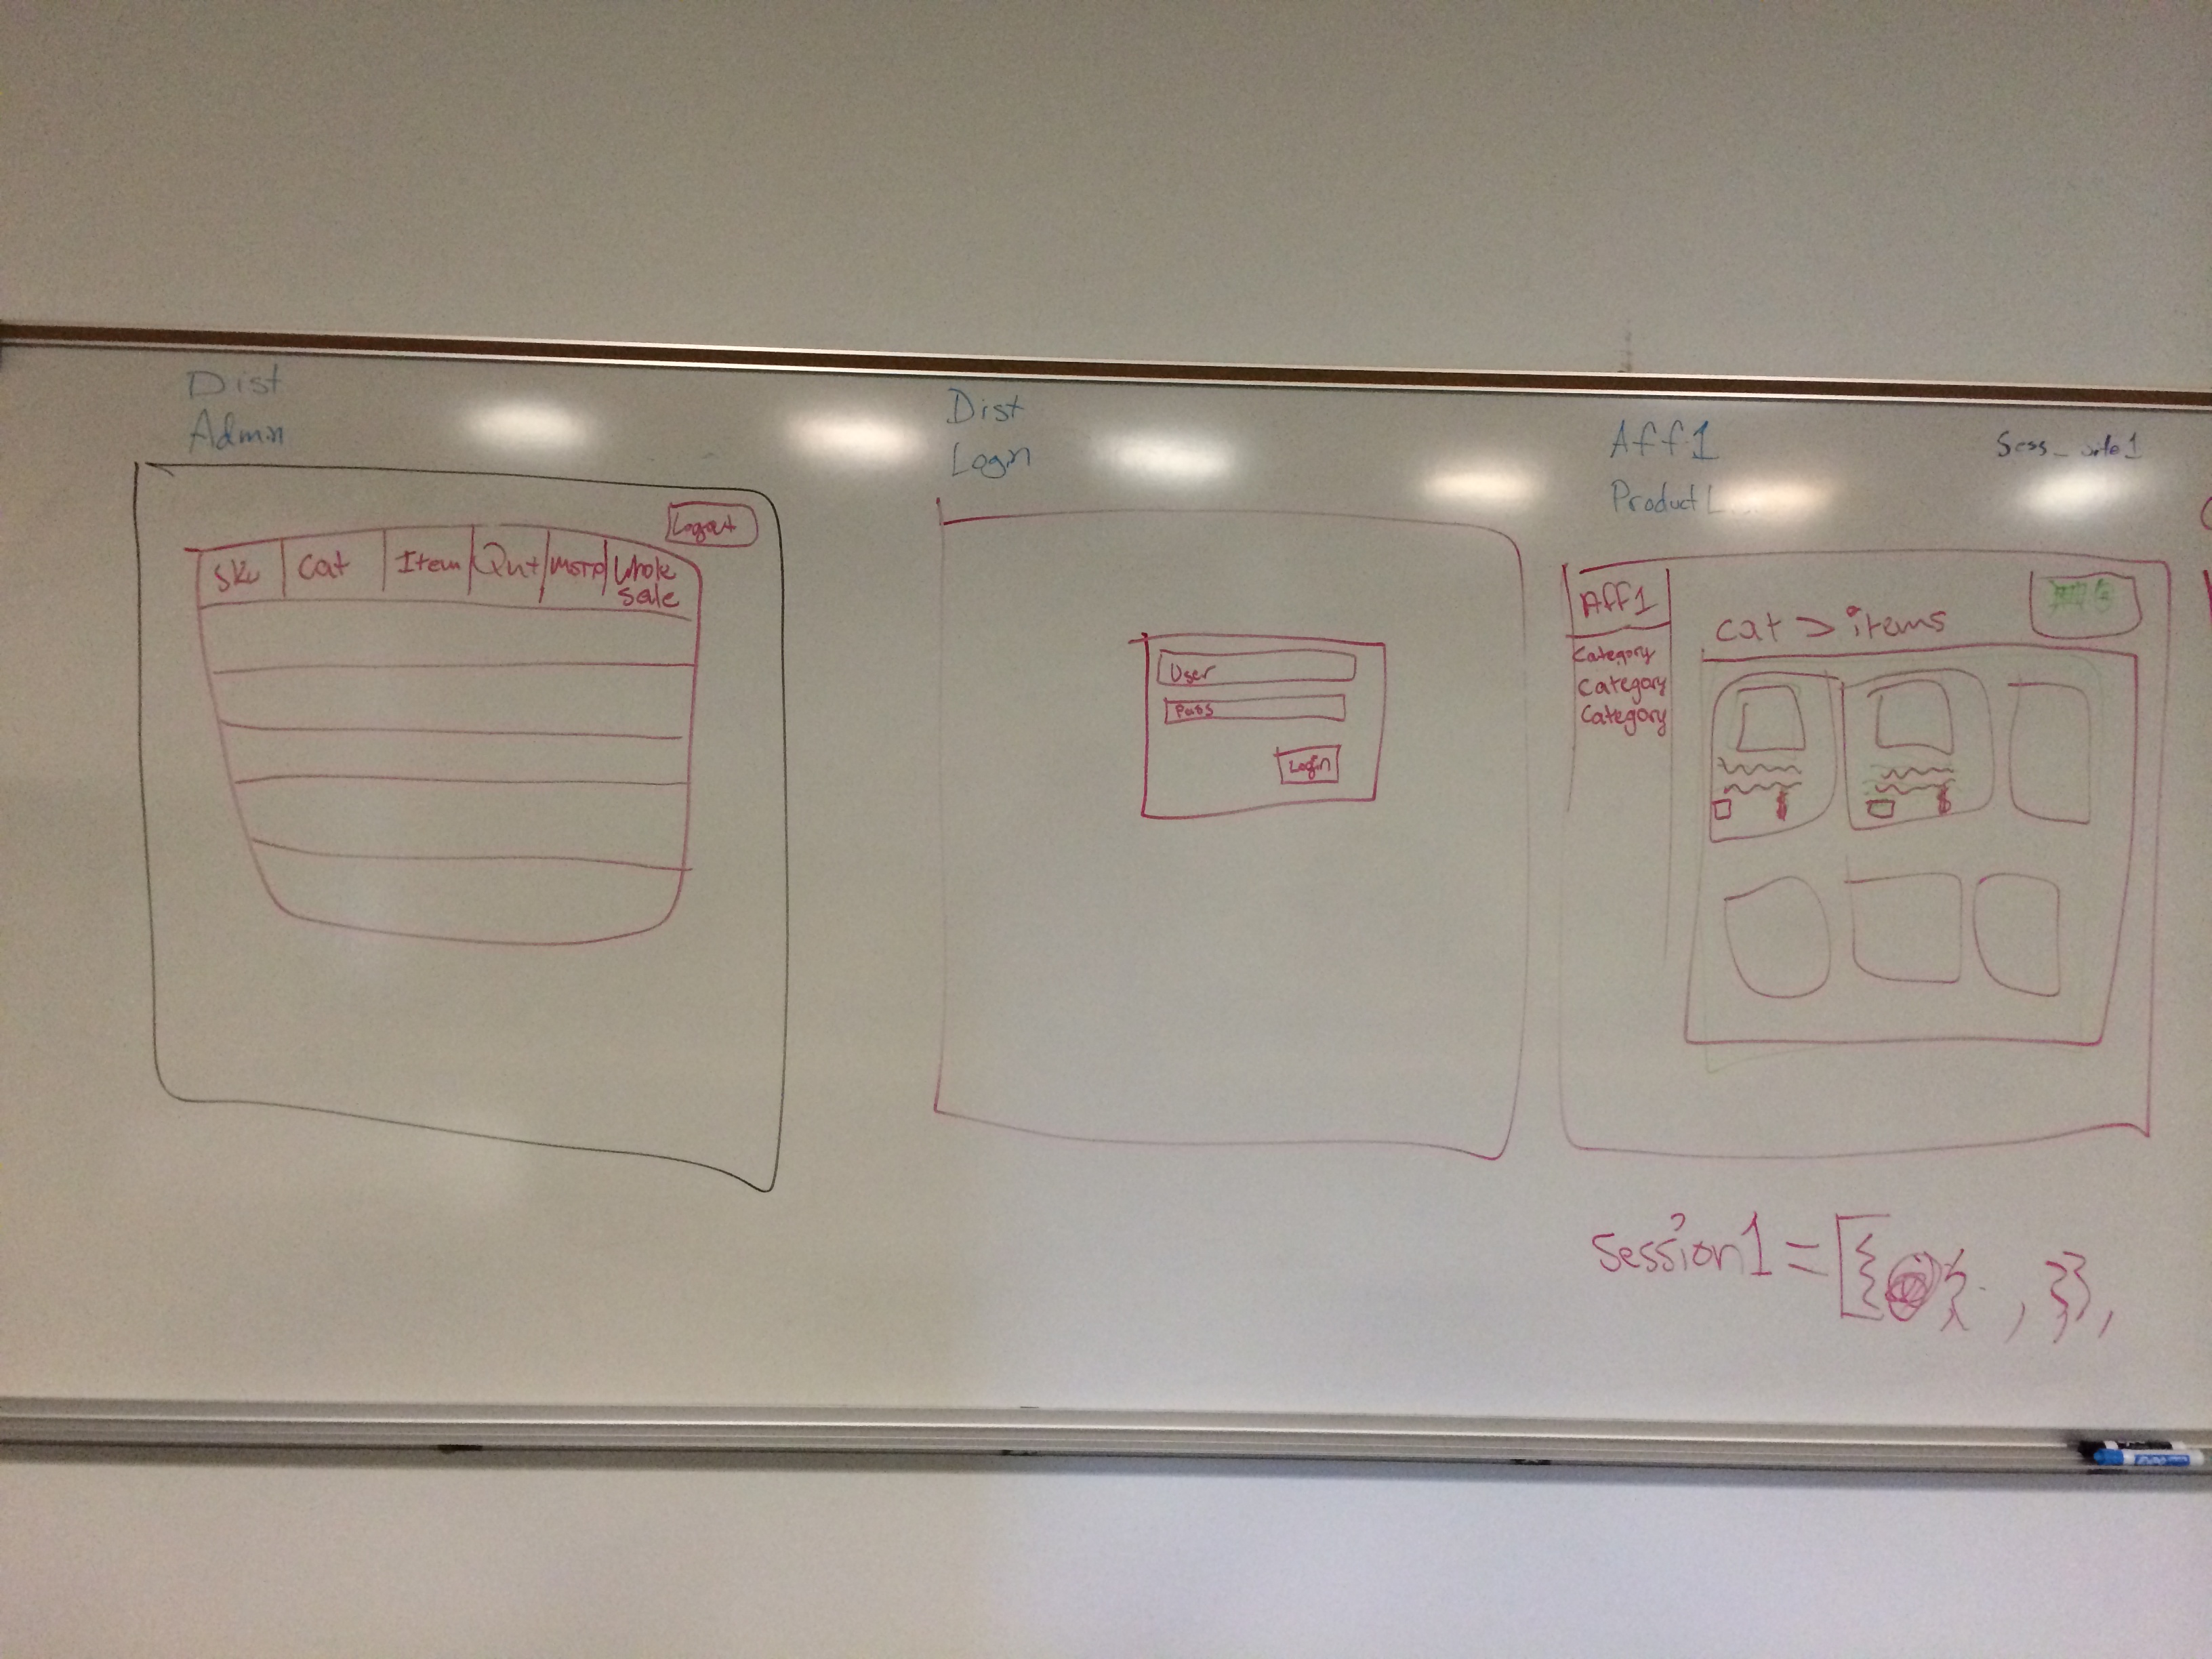 Dist
Admin
Logout
SKU
Cat
Item
Qnt
MSRP
Whole
Sale
Dist
Login
User
Pass
Login
Aff1
Product
Sess_
AFF1
cat > items
Category
Category
Category
$
$
Session1 = [{ , }},
EXPO